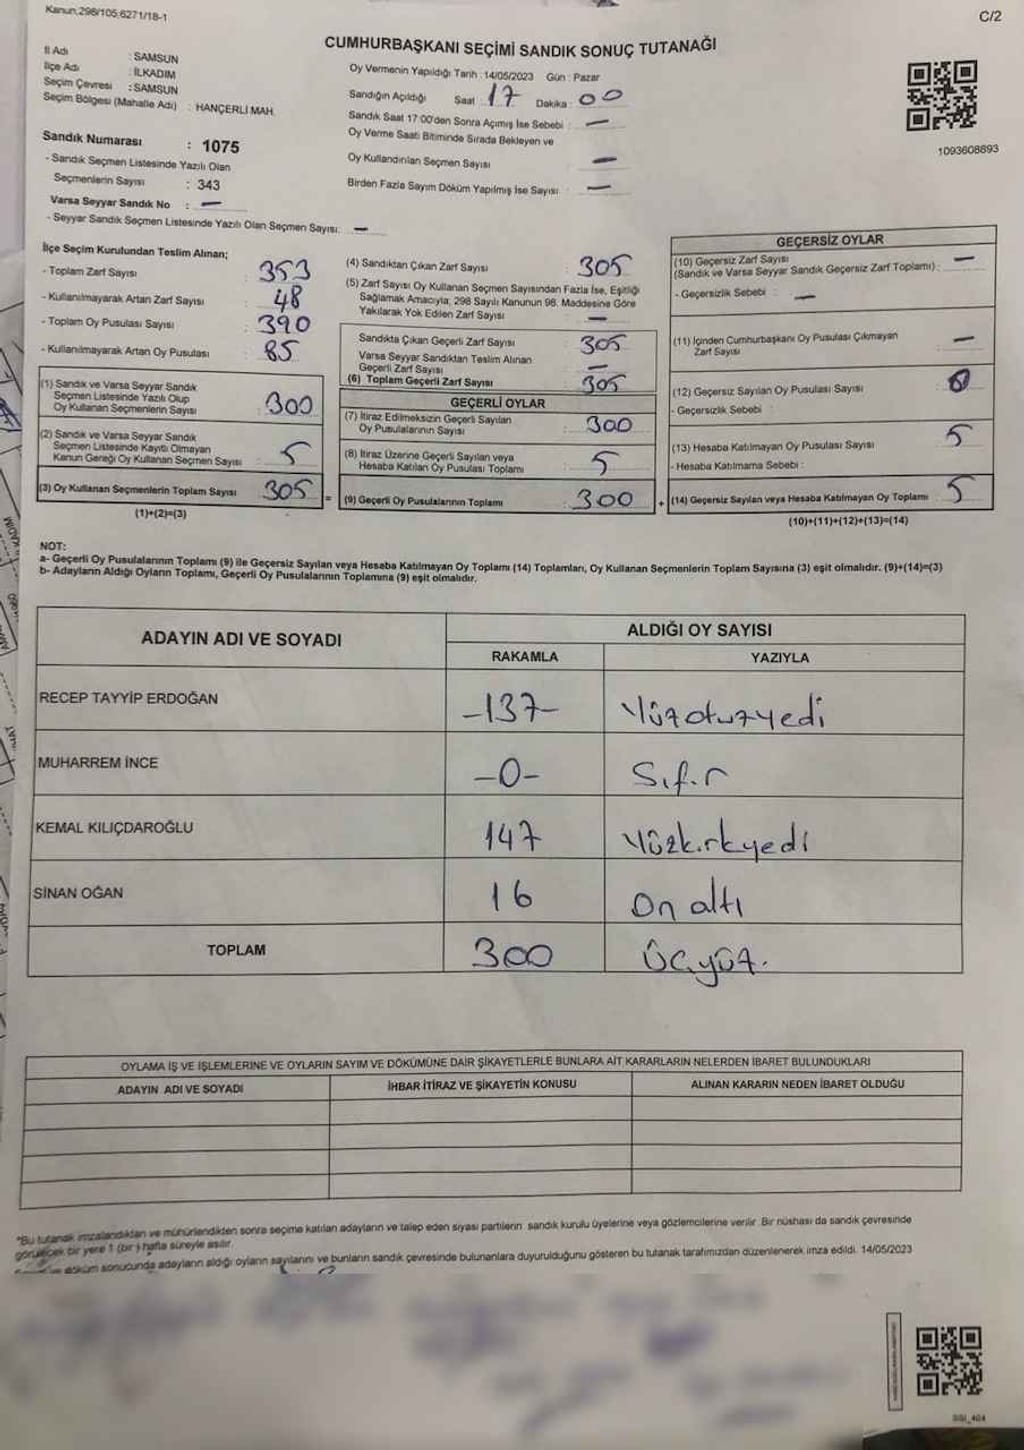 Kanun,298/105;6271/18-1
C/2
CUMHURBAŞKANI SEÇİMİ SANDIK SONUÇ TUTANAĞI
İl Adı : SAMSUN
İlçe Adı : İLKADIM
Seçim Çevresi : SAMSUN
Seçim Bölgesi (Mahalle Adı) : HANÇERLİ MAH.
Sandık Numarası : 1075
- Sandık Seçmen Listesinde Yazılı Olan
Seçmenlerin Sayısı : 343
Varsa Seyyar Sandık No : —
- Seyyar Sandık Seçmen Listesinde Yazılı Olan Seçmen Sayısı: —
Oy Vermenin Yapıldığı Tarih : 14/05/2023 Gün : Pazar
Sandığın Açıldığı Saat : 17 Dakika : 00
Sandık Saat 17:00'den Sonra Açımış İse Sebebi : —
Oy Verme Saati Bitiminde Sırada Bekleyen ve
Oy Kullandırılan Seçmen Sayısı —
Birden Fazla Sayım Döküm Yapılmış İse Sayısı : —
1093608893
İlçe Seçim Kurulundan Teslim Alınan;
- Toplam Zarf Sayısı : 353
- Kullanılmayarak Artan Zarf Sayısı : 48
- Toplam Oy Pusulası Sayısı : 390
- Kullanılmayarak Artan Oy Pusulası : 85
(1) Sandık ve Varsa Seyyar Sandık
Seçmen Listesinde Yazılı Olup
Oy Kullanan Seçmenlerin Sayısı : 300
(2) Sandık ve Varsa Seyyar Sandık
Seçmen Listesinde Kayıtlı Olmayan
Kanun Gereği Oy Kullanan Seçmen Sayısı : 5
(3) Oy Kullanan Seçmenlerin Toplam Sayısı 305
(1)+(2)=(3)
(4) Sandıktan Çıkan Zarf Sayısı : 305
(5) Zarf Sayısı Oy Kullanan Seçmen Sayısından Fazla İse, Eşitliği
Sağlamak Amacıyla, 298 Sayılı Kanunun 98. Maddesine Göre
Yakılarak Yok Edilen Zarf Sayısı : —
Sandıkta Çıkan Geçerli Zarf Sayısı : 305
Varsa Seyyar Sandıktan Teslim Alınan
Geçerli Zarf Sayısı : —
(6) Toplam Geçerli Zarf Sayısı : 305
GEÇERLİ OYLAR
(7) İtiraz Edilmeksizin Geçerli Sayılan
Oy Pusulalarının Sayısı : 300
(8) İtiraz Üzerine Geçerli Sayılan veya
Hesaba Katılan Oy Pusulası Toplamı : 5
= (9) Geçerli Oy Pusulalarının Toplamı : 300
GEÇERSİZ OYLAR
(10) Geçersiz Zarf Sayısı
(Sandık ve Varsa Seyyar Sandık Geçersiz Zarf Toplamı) : —
- Geçersizlik Sebebi : —
(11) İçinden Cumhurbaşkanı Oy Pusulası Çıkmayan
Zarf Sayısı —
(12) Geçersiz Sayılan Oy Pusulası Sayısı : 0
- Geçersizlik Sebebi :
(13) Hesaba Katılmayan Oy Pusulası Sayısı : 5
- Hesaba Katılmama Sebebi :
+ (14) Geçersiz Sayılan veya Hesaba Katılmayan Oy Toplamı : 5
(10)+(11)+(12)+(13)=(14)
NOT:
a- Geçerli Oy Pusulalarının Toplamı (9) ile Geçersiz Sayılan veya Hesaba Katılmayan Oy Toplamı (14) Toplamları, Oy Kullanan Seçmenlerin Toplam Sayısına (3) eşit olmalıdır. (9)+(14)=(3)
b- Adayların Aldığı Oyların Toplamı, Geçerli Oy Pusulalarının Toplamına (9) eşit olmalıdır.
ADAYIN ADI VE SOYADI
ALDIĞI OY SAYISI
RAKAMLA YAZIYLA
RECEP TAYYİP ERDOĞAN -137- Yüzotuzyedi
MUHARREM İNCE -0- Sıfır
KEMAL KILIÇDAROĞLU 147 Yüzkırkyedi
SİNAN OĞAN 16 On altı
TOPLAM 300 Üçyüz.
OYLAMA İŞ VE İŞLEMLERİNE VE OYLARIN SAYIM VE DÖKÜMÜNE DAİR ŞİKAYETLERLE BUNLARA AİT KARARLARIN NELERDEN İBARET BULUNDUKLARI
ADAYIN ADI VE SOYADI İHBAR İTİRAZ VE ŞİKAYETİN KONUSU ALINAN KARARIN NEDEN İBARET OLDUĞU
*Bu tutanak imzalandıktan ve mühürlendikten sonra seçime katılan adayların ve talep eden siyasi partilerin sandık kurulu üyelerine veya gözlemcilerine verilir. Bir nüshası da sandık çevresinde
görülecek bir yere 1 (bir) hafta süreyle asılır.
döküm sonucunda adayların aldığı oyların sayılarını ve bunların sandık çevresinde bulunanlara duyurulduğunu gösteren bu tutanak tarafımızdan düzenlenerek imza edildi. 14/05/2023